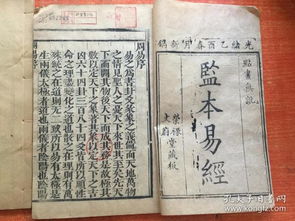 光緒乙酉春月新鐫
點畫無訛
監本易經
堂藏板
周易序
易之爲書卦爻彖象之義備而天地萬物
之情見聖人之憂天下來世其至矣先天
下而開其物後天下而成其務是故極其
數以定天下之象著其象以定天下之吉
凶六十四卦三百八十四爻皆所以順性
命之理盡變化之道也散之在理則有萬
殊統之在道則无二致所以易有太極是
生兩儀太極者道也兩儀者陰陽也陰陽
周易序